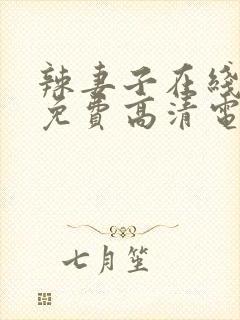 辣妻子在线
免費高清電
七月笙